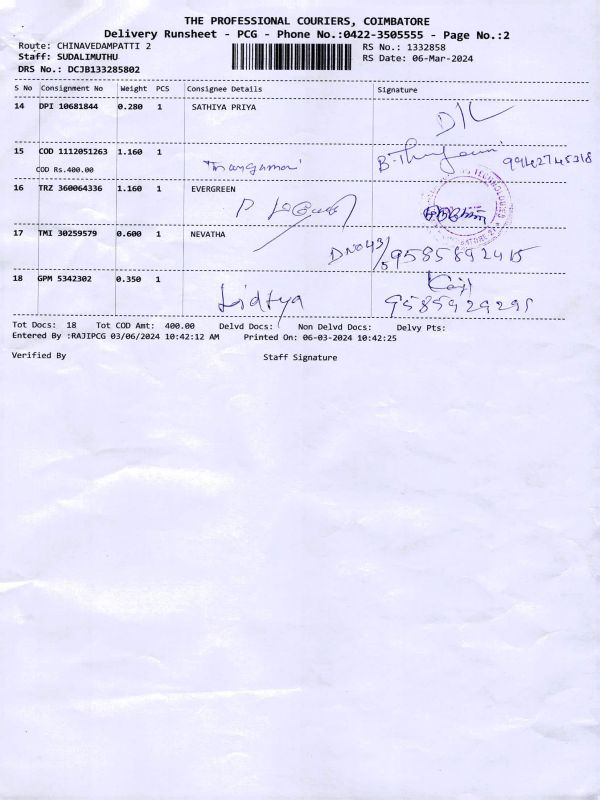 THE PROFESSIONAL COURIERS, COIMBATORE
Delivery Runsheet - PCG - Phone No.:0422-3505555 - Page No.:2
Route: CHINAVEDAMPATTI 2 RS No.: 1332858
Staff: SUDALIMUTHU RS Date: 06-Mar-2024
DRS No.: DCJB133285802
S No Consignment No Weight PCS Consignee Details Signature
14 DPI 10681844 0.280 1 SATHIYA PRIYA
15 COD 1112051263 1.160 1
COD Rs.400.00
16 TRZ 360064336 1.160 1 EVERGREEN
17 TMI 30259579 0.600 1 NEVATHA
9585892415
18 GPM 5342302 0.350 1
9585929295
Tot Docs: 18 Tot COD Amt: 400.00 Delvd Docs: Non Delvd Docs: Delvy Pts:
Entered By :RAJIPCG 03/06/2024 10:42:12 AM Printed On: 06-03-2024 10:42:25
Verified By Staff Signature